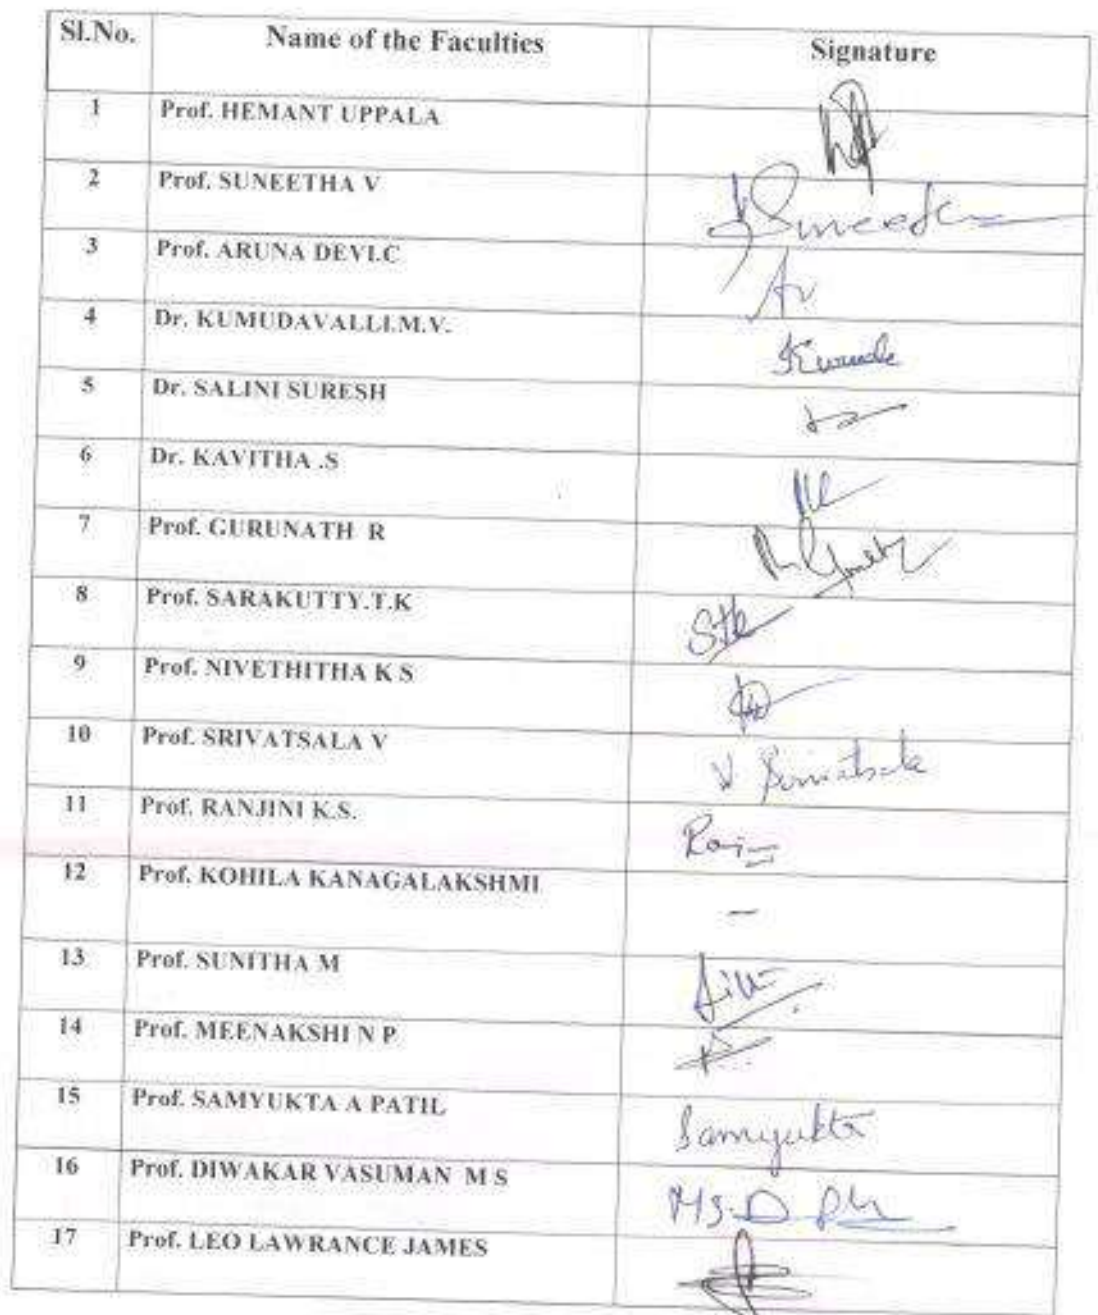 Sl.No. Name of the Faculties Signature
1 Prof. HEMANT UPPALA
2 Prof. SUNEETHA V Suneetha
3 Prof. ARUNA DEVI.C
4 Dr. KUMUDAVALLI.M.V.
5 Dr. SALINI SURESH
6 Dr. KAVITHA .S
7 Prof. GURUNATH R
8 Prof. SARAKUTTY.T.K Stk
9 Prof. NIVETHITHA K S
10 Prof. SRIVATSALA V V Srivatsala
11 Prof. RANJINI K.S.
12 Prof. KOHILA KANAGALAKSHMI -
13 Prof. SUNITHA M
14 Prof. MEENAKSHI N P
15 Prof. SAMYUKTA A PATIL Samyukta
16 Prof. DIWAKAR VASUMAN M S
17 Prof. LEO LAWRANCE JAMES